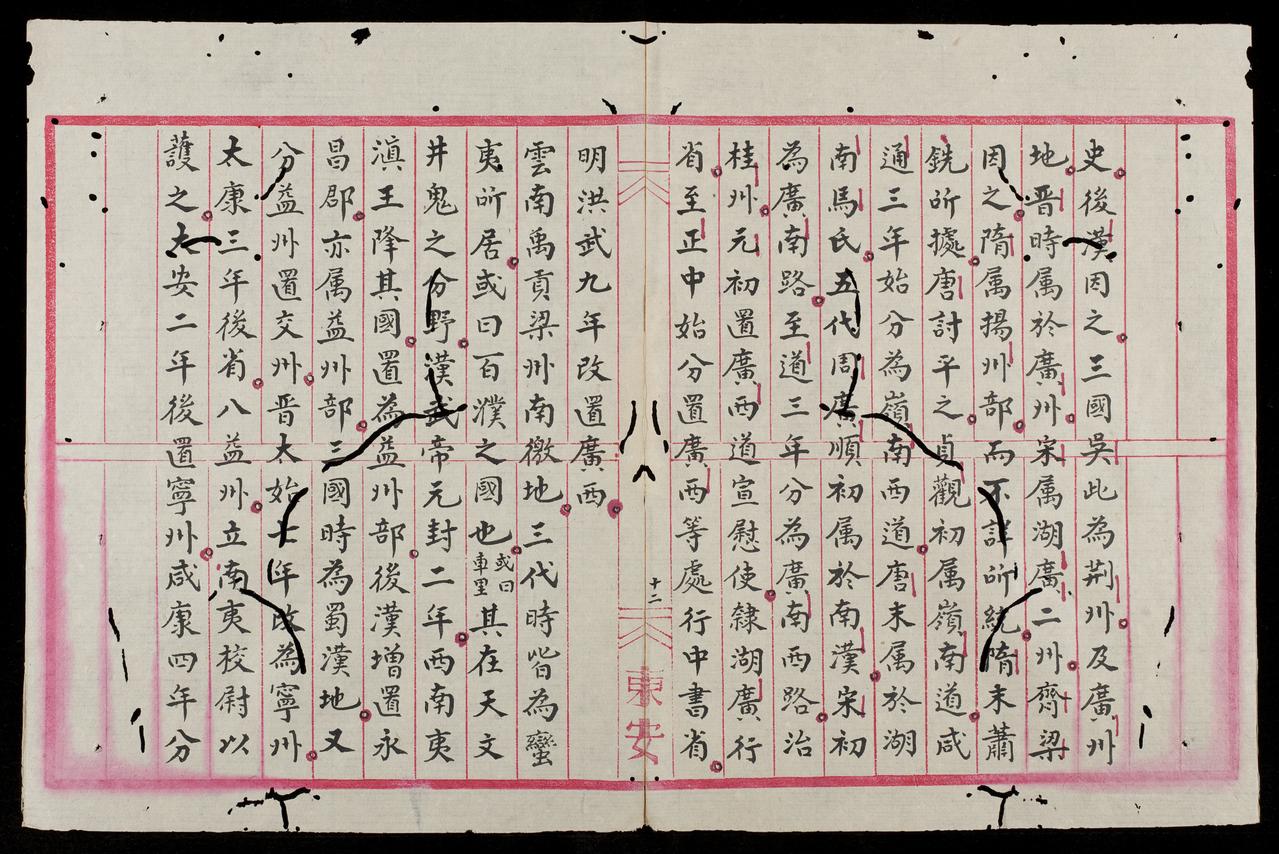 史後漢因之三國吳此為荆州及廣州
地晋時属於廣州宋属湖廣二州齊梁
因之隋属揚州部而不詳所統隋末蕭
銑所擄唐討平之貞觀初属嶺南道咸
通三年始分為嶺南西道唐末属於湖
南馬氏五代周廣順初属於南漢宋初
為廣南路至道三年分為廣南西路治
桂州元初置廣西道宣慰使隸湖廣行
省至正中始分置廣西等處行中書省
十二
東安
明洪武九年改置廣西
雲南禹貢梁州南徼地三代時皆為蠻
夷所居或曰百濮之國也或曰車里其在天文
井鬼之分野漢武帝元封二年西南夷
滇王降其國置為益州部後漢增置永
昌郡亦属益州部三國時為蜀漢地又
分益州置交州晋太始七年改為寧州
太康三年後省八益州立南夷校尉以
護之太安二年後置寧州咸康四年分